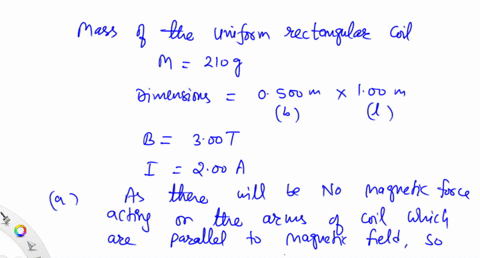 Mass of the uniform rectangular coil
M = 210g
Dimensions = 0.500 m × 1.00 m
(b) (l)
B = 3.00T
I = 2.00 A
(a) As there will be No magnetic force
acting on the arms of coil which
are parallel to magnetic field, so